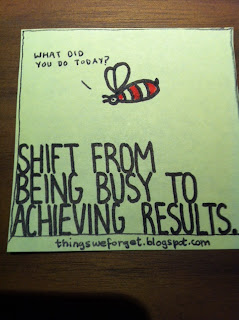 WHAT DID
YOU DO TODAY?
SHIFT FROM
BEING BUSY TO
ACHIEVING RESULTS.
thingsweforget.blogspot.com